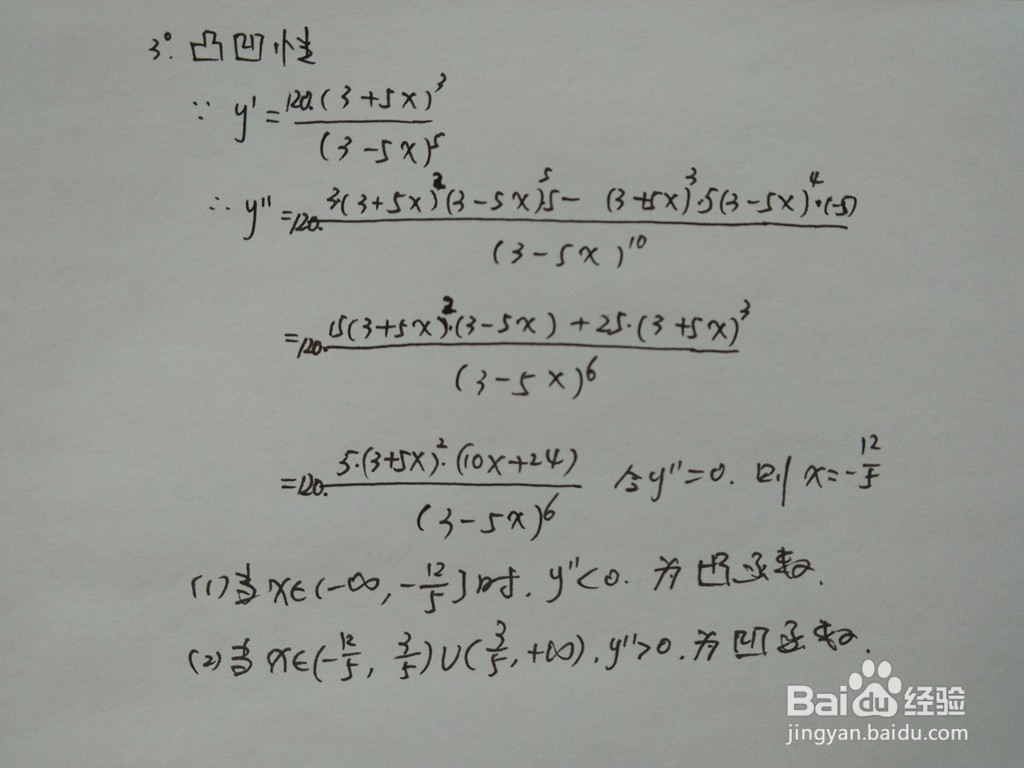 3°. 凸凹性
∵ y' = 120.(3+5x)³ / (3-5x)⁵
∴ y'' =120. 3(3+5x)²(3-5x)⁵5 - (3+5x)³·5(3-5x)⁴·(-5) / (3-5x)¹⁰
=120. 15(3+5x)²·(3-5x) + 25·(3+5x)³ / (3-5x)⁶
=120. 5·(3+5x)²·(10x+24) / (3-5x)⁶ 令y''=0. 则 x=-12/5
(1)当x∈(-∞, -12/5]时, y''<0. 为凸函数.
(2)当 x∈(-12/5, 3/5)∪(3/5, +∞), y''>0. 为凹函数.
Baidu 经验
jingyan.baidu.com